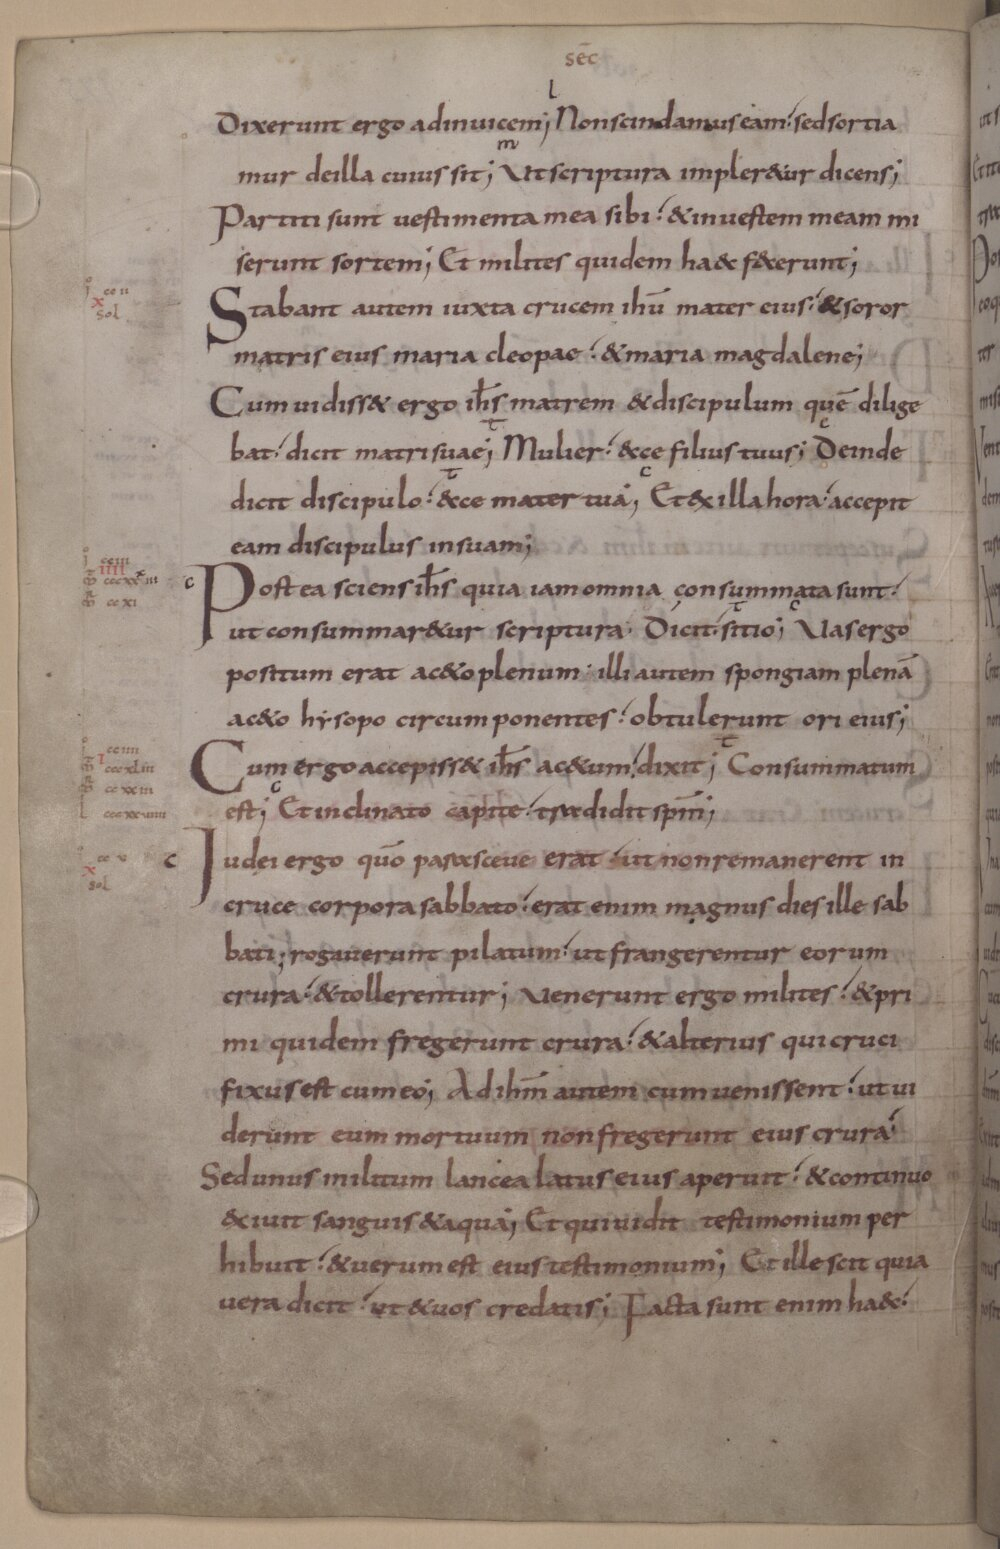 sēc
l
Dixerunt ergo adinuicem; Nonscindamus eam. sed sortia
m
mur deilla cuius sit; Ut scriptura impler&ur dicens;
Partiti sunt uestimenta mea sibi. & inuestem meam mi
serunt sortem; Et milites quidem haec f&erunt;
Stabant autem iuxta crucem ihū mater eius. & soror
matris eius maria cleopae. & maria magdalene;
Cum uidiss& ergo ihs matrem & discipulum quē dilige
bat. dicit matri suae; Mulier. &ce filius tuus; Deinde
dicit discipulo. &ce mater tua; Et &x illa hora. accepit
eam discipulus insuam;
Postea sciens ihs quia iam omnia consummata sunt.
ut consummar&ur scriptura. Dicit. sitio; Vas ergo
positum erat ac&o plenum. illi autem spongiam plenā
ac&o hysopo circumponentes. obtulerunt ori eius;
Cum ergo accepiss& ihs ac&um. dixit; Consummatum
est; Et inclinato capite. tradidit spm;
Iudei ergo quō parasceue erat. ut non remanerent in
cruce corpora sabbato. erat enim magnus dies ille sab
bati; rogauerunt pilatum. ut frangerentur eorum
crura. & tollerentur; Venerunt ergo milites. & pri
mi quidem fregerunt crura. & alterius qui cruci
fixus est cum eo; Ad ihm autem cum uenissent. ut ui
derunt eum mortuum non fregerunt eius crura.
Sed unus militum lancea latus eius aperuit. & continuo
&iuit sanguis & aqua; Et qui uidit testimonium per
hibuit. & uerum est eius testimonium; Et ille scit quia
uera dicit. ut & uos credatis; Facta sunt enim haec.